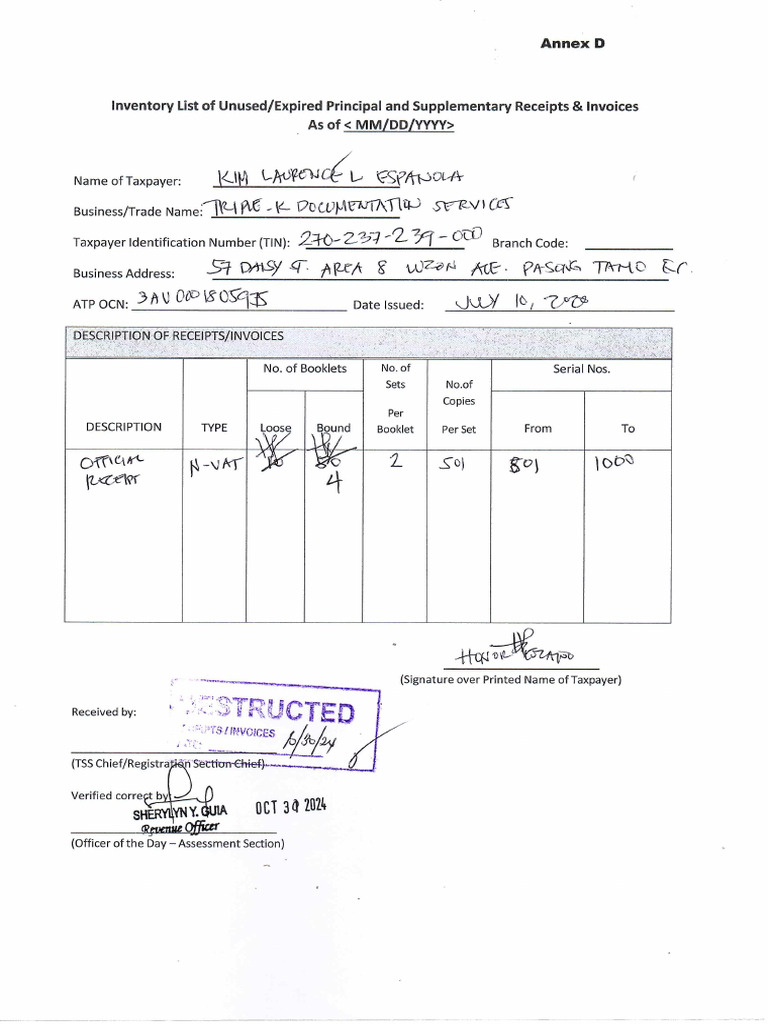 Annex D
Inventory List of Unused/Expired Principal and Supplementary Receipts & Invoices
As of < MM/DD/YYYY>
Name of Taxpayer: KIM LAURENCE L ESPAÑOLA
Business/Trade Name: TRIPLE-K DOCUMENTATION SERVICES
Taxpayer Identification Number (TIN): 270-237-239-000 Branch Code:
Business Address: 57 DAISY ST. AREA 8 LUZON AVE. PASONG TAMO Q.C.
ATP OCN: 3AU0001805975 Date Issued: JULY 10, 2020
DESCRIPTION OF RECEIPTS/INVOICES
DESCRIPTION TYPE No. of Booklets Loose Bound No. of Sets Per Booklet No.of Copies Per Set Serial Nos. From To
OFFICIAL RECEIPT N-VAT 4 2 501 801 1000
HONOR
(Signature over Printed Name of Taxpayer)
Received by:
DESTRUCTED
RECEIPTS / INVOICES
10/30/24
(TSS Chief/Registration Section Chief)
Verified correct by:
SHERYLYN Y. GUIA OCT 30 2024
Revenue Officer
(Officer of the Day – Assessment Section)